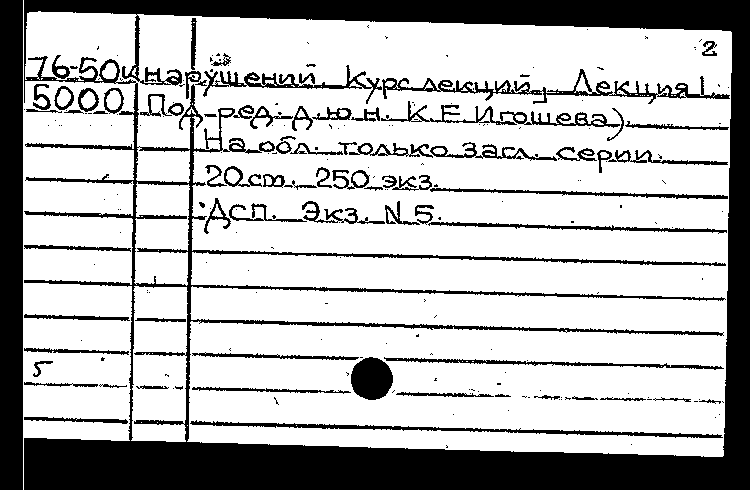 2
76-50кнарушений. Курс лекций, Лекция 1.
5000 Под ред. д.ю.н. К.Е Игошева).
На обл. только загл. серии.
20 cm. 250 экз.
Дсп. Экз. N 5.
5